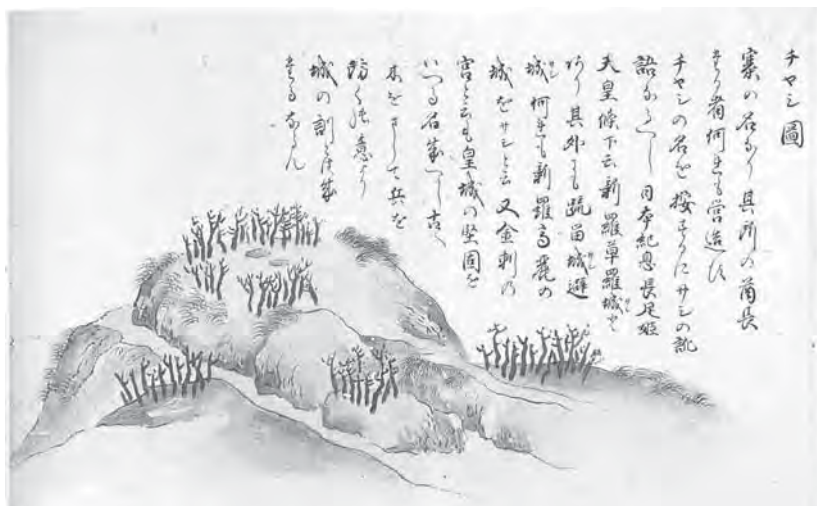 チヤシ圖
寨の名なり其所の酋長
たる者何れも営造す
チヤシの名を按するにサシの訛
語なるへし日本紀息長足姫
天皇條下云新羅草羅城と
あり其外にも䟽留城避
城何れも新羅高麗の
城をサシと云又金刺の
宮と云も皇城の堅固を
いへる名成へし古へ
木をさして兵を
防く
城の訓とは成
たるならん